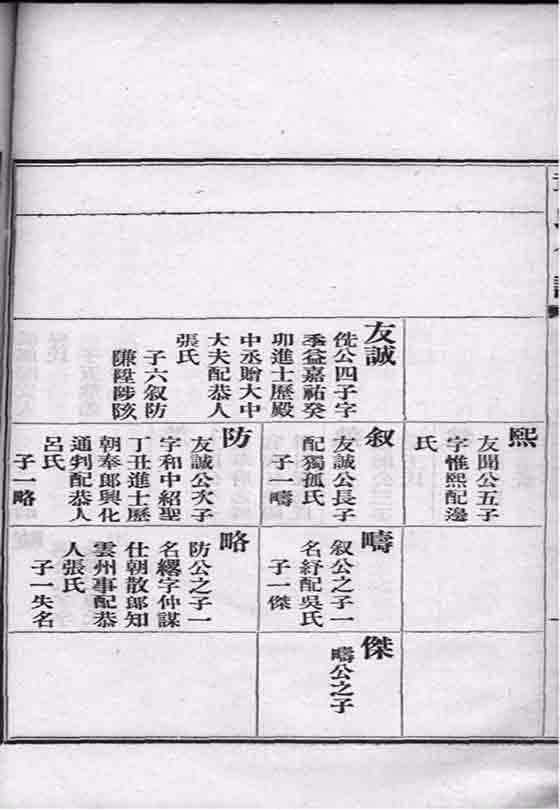 熙
友聞公五子
字惟熙配邊
氏
友誠
侁公四子字
季益嘉祐癸
卯進士歷殿
中丞贈大中
大夫配恭人
張氏
子六叙防
隒陞陟陔
叙
友誠公長子
配獨孤氏
子一疇
疇
叙公之子一
名紓配吳氏
子一傑
傑
疇公之子
防
友誠公次子
字和中紹聖
丁丑進士歷
朝奉郎興化
通判配恭人
呂氏
子一略
略
防公之子一
名繆字仲謀
仕朝散郎知
雲州事配恭
人張氏
子一失名